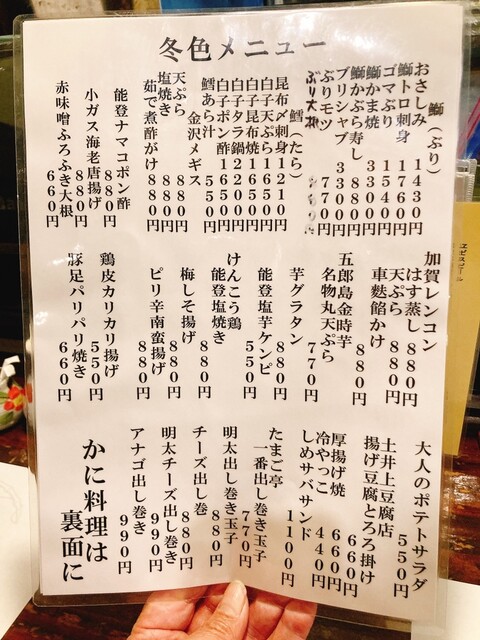 冬色メニュー
鰤（ぶり）
おさしみ 1430円
鰤トロ刺身 1760円
ゴマぶり 1540円
鰤かま焼 3300円
鰤かぶら寿し 880円
ブリシャブ 3300円
ぶりモツ 770円
ぶり大根
鱈（たら）
昆布〆刺身 1210円
白子天ぷら 1650円
白子昆布焼 1650円
白子タラ鍋 2200円
白子ポン酢 1650円
鱈あら汁 550円
金沢メギス
天ぷら 880円
塩焼き 880円
茹で煮酢がけ 880円
能登ナマコポン酢 880円
小ガス海老唐揚げ 880円
赤味噌ふろふき大根 660円
加賀レンコン
はす蒸し 880円
天ぷら 880円
車麩餡かけ 880円
五郎島金時芋
名物丸天ぷら 880円
芋グラタン 770円
能登塩芋ケンピ 550円
けんこう鶏
能登塩焼き 880円
梅しそ揚げ 880円
ピリ辛南蛮揚げ 880円
鶏皮カリカリ揚げ 550円
豚足パリパリ焼き 660円
大人のポテトサラダ 550円
土井上豆腐店
揚げ豆腐とろろ掛け 660円
厚揚げ焼 660円
冷やっこ 440円
しめサバサンド 1100円
たまご亭
一番出し巻き玉子 770円
明太出し巻き玉子 880円
チーズ出し巻 880円
明太チーズ出し巻き 990円
アナゴ出し巻き 990円
かに料理は
裏面に